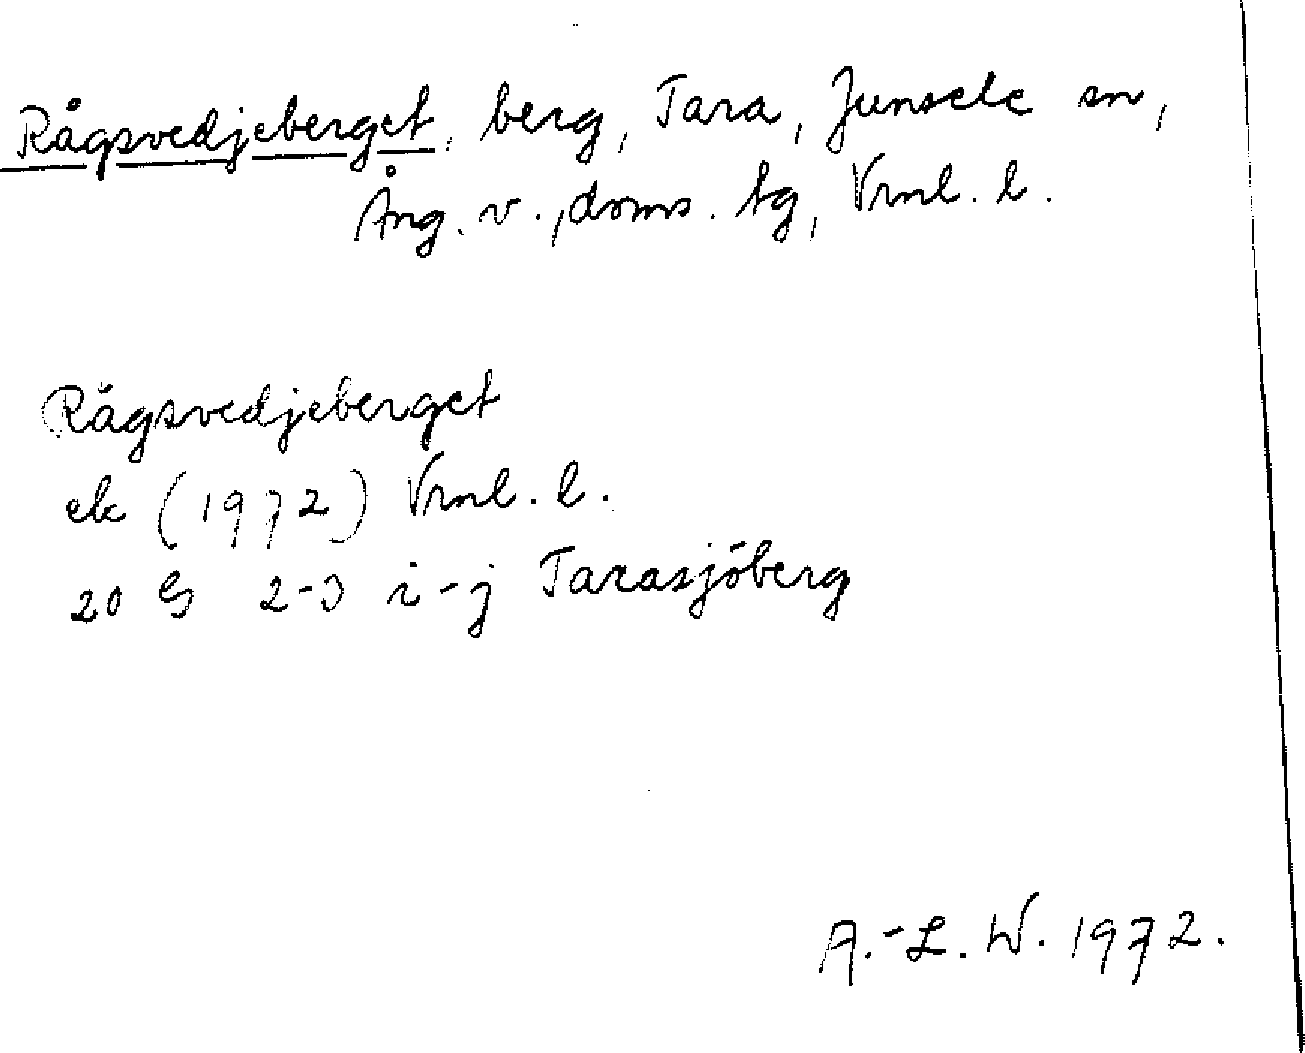 Rågsvedjeberget, berg, Tara, Junsele sn,
Ång. v., doms. tg, Vrnl. l.
Rågsvedjeberget
ek (1972) Vrnl. l.
20 G 2-3 i-j Tarasjöberg
A.-L. W. 1972.